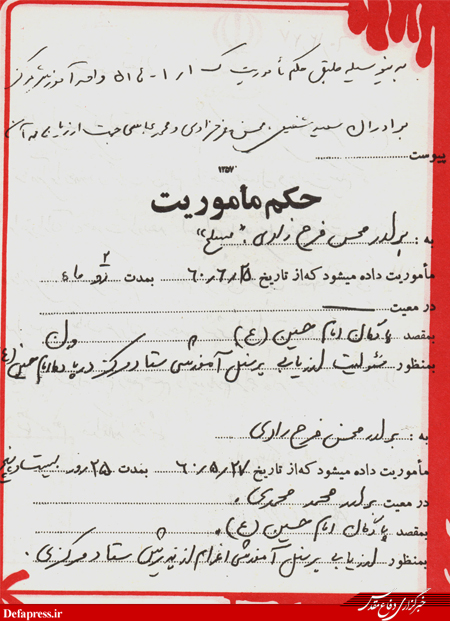 بدینوسیله طبق حکم مأموریت واحد آموزش مرکز
برادران سعید شفیعی محسن فرح زادی و محمد عباسی جهت ارزیابی به آن
پیوست
۱۳۵۷
حکم مأموریت
به : برادر محسن فرح زادی "مسلح"
مأموریت داده میشود که از تاریخ ۶۰,۶,۲۵ بمدت ۲ دو ماه
در معیت
بمقصد پادگان امام حسین (ع)
بمنظور مسئولیت ارزیابی پرسنل آموزشی ستاد مرکز در پادگان امام حسین (ع)
به : برادر محسن فرح زادی
مأموریت داده میشود که از تاریخ ۶۰,۵,۲۷ بمدت ۲۵ روز بیست و پنج
در معیت برادر محمد محمدی
بمقصد پادگان امام حسین (ع)
بمنظور ارزیابی پرسنل آموزشی اعزام از پذیرش ستاد مرکزی
Defapress.ir
خبرگزاری دفاع مقدس